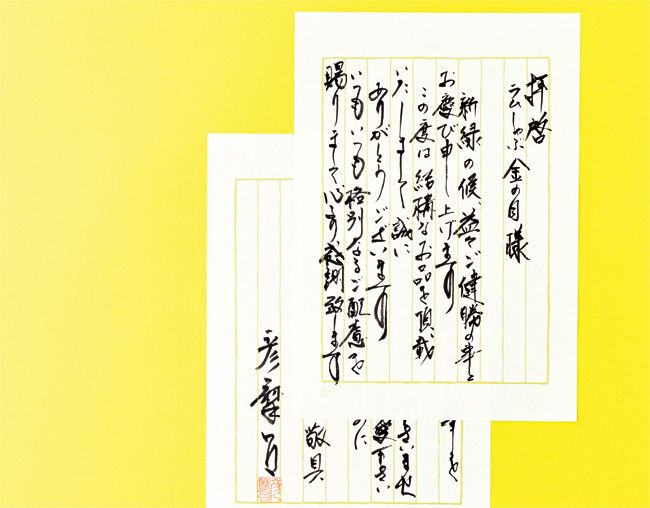 拝啓
ラムしゃぶ金の目様
新緑の候、益々ご健勝の事と
お慶び申し上げます
この度は結構なお品を頂戴
いたしまして誠に
ありがとうございます
いつもいつも格別なるご配慮を
賜りまして心より感謝致します
敬具